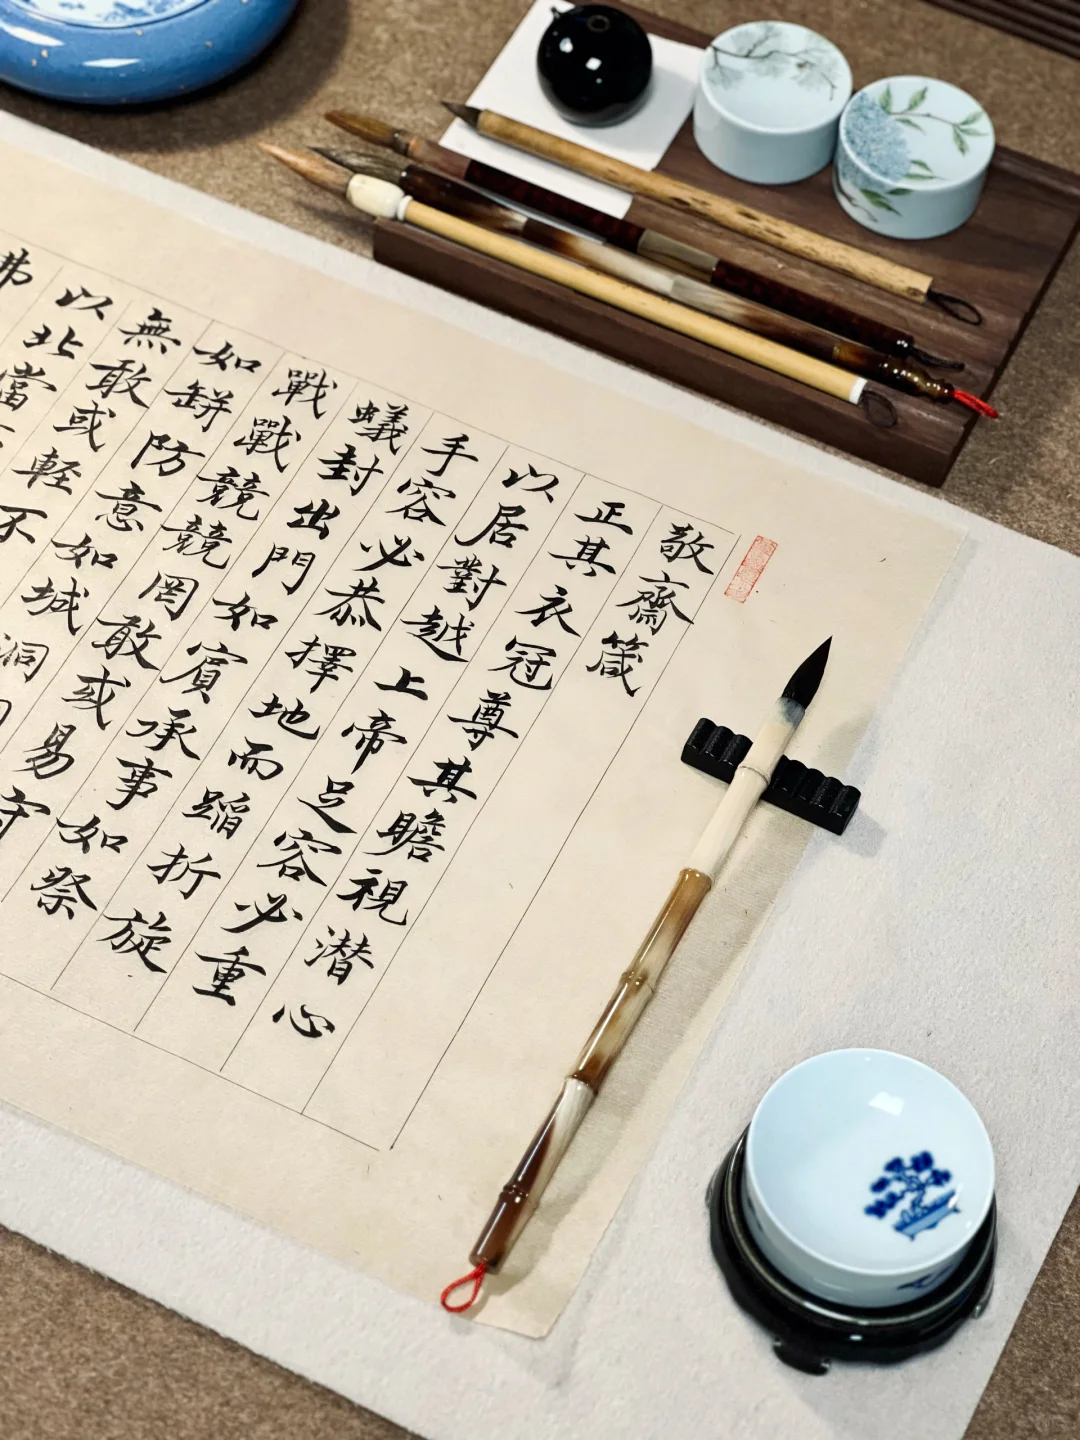 敬齋箴
正其衣冠尊其瞻視潜心
以居對越上帝足容必重
手容必恭擇地而蹈折旋
蟻封出門如賓承事如祭
戰戰競競罔敢或易守
如缾防意如城洞洞
無敢或輕不
以北當
弗